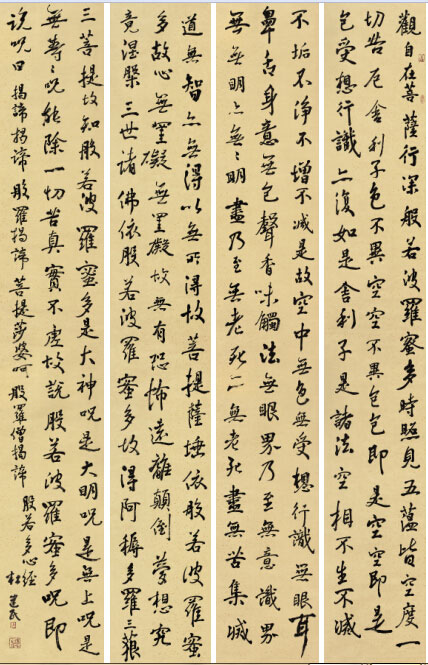 觀自在菩薩行深般若波羅蜜多時照見五蘊皆空度一
切苦厄舍利子色不異空空不異色色即是空空即是
色受想行識亦復如是舍利子是諸法空相不生不滅
不垢不淨不增不減是故空中無色無受想行識無眼耳
鼻舌身意無色聲香味觸法無眼界乃至無意識界
無無明亦無〻明盡乃至無老死亦無老死盡無苦集滅
道無智亦無得以無所得故菩提薩埵依般若波羅蜜
多故心無罣礙無罣礙故無有恐怖遠離顛倒夢想究
竟涅槃三世諸佛依般若波羅蜜多故得阿耨多羅三藐
三菩提故知般若波羅蜜多是大神呪是大明呪是無上呪是
無等〻呪能除一切苦真實不虛故說般若波羅蜜多呪即
說呪曰揭諦揭諦般羅揭諦菩提莎婆呵般羅僧揭諦
般若多心經